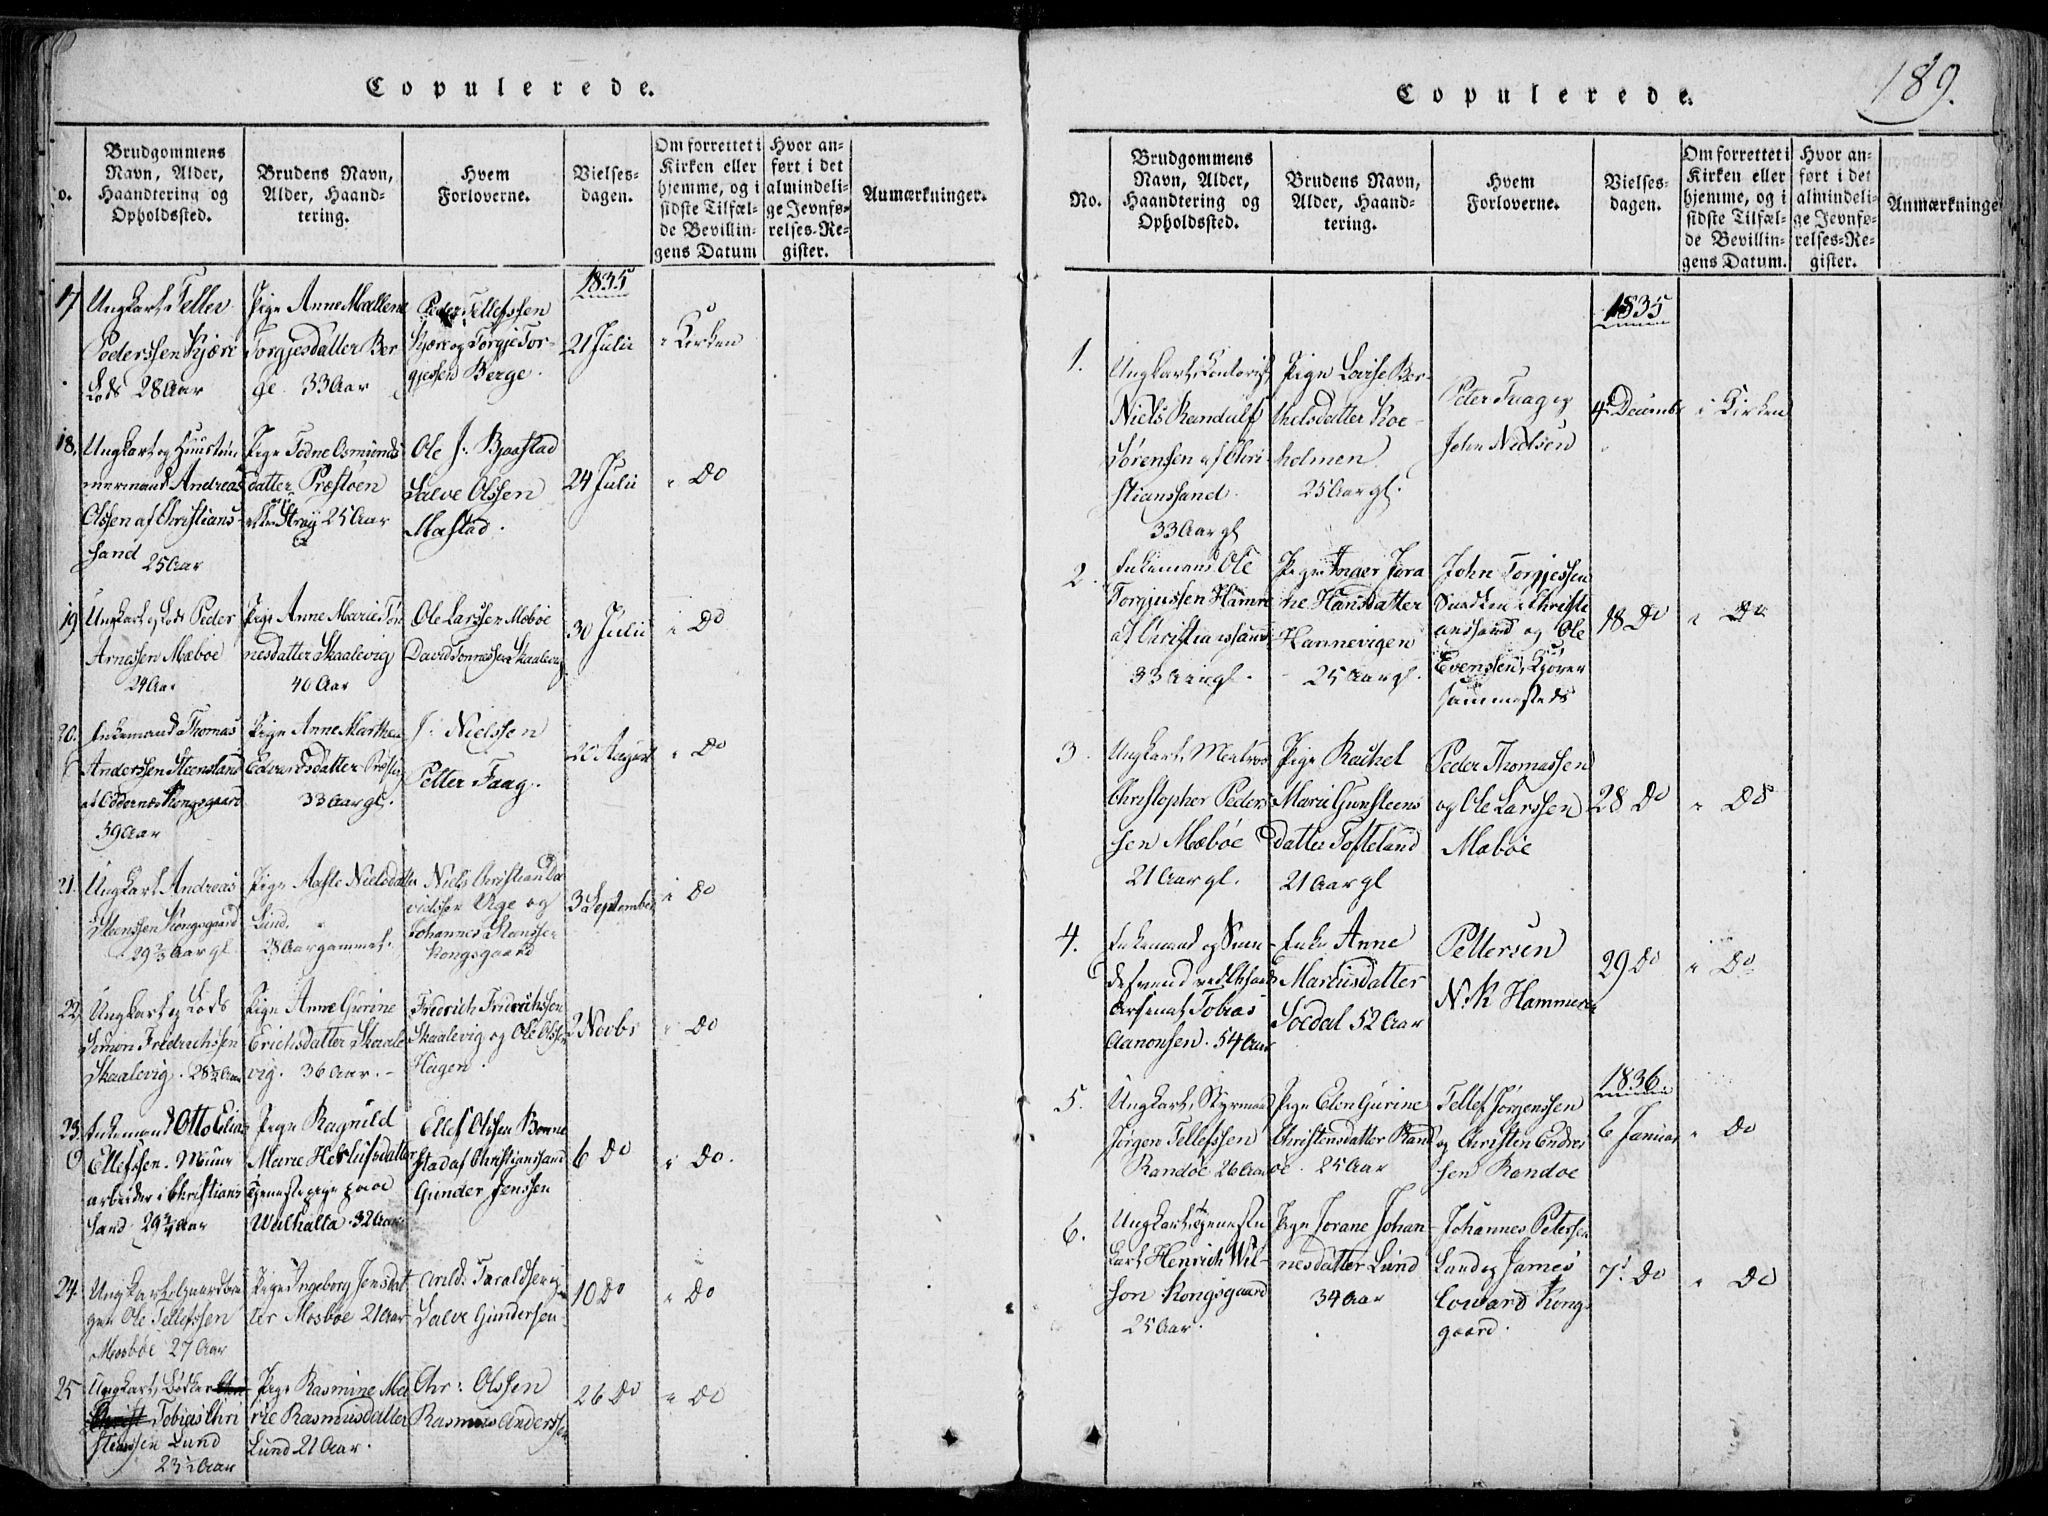 Copulerede.
o.
Brudgommens
Navn, Alder,
Haandtering og
Opholdssted.
Brudens Navn,
Alder, Haand-
tering.
Hvem
Forloverne.
Vielses-
dagen.
Om forrettet i
Kirken eller
hjemme, og i
sidste Tilfæl-
de Bevillin-
gens Datum
Hvor an-
ført i det
almindeli-
ge Jevnfø-
relses-Re-
gister.
Anmærkninger.
1835
17
Ungkarl Tellev
Pederssen Kjære
Lods 28 Aar
Pige Anne Mallene
Torgjesdatter Ber
ge. 33 Aar
Peder Tellefssen
Kjære og Torgje Tor-
gjessen Berge.
21 Julii
i Kirken
18.
Ungkarl og Huustøm
mermand Andreas
Olssen af Christians-
sand
25 Aar
Pige Todne Osmunds
datter Præstøen
Strøÿ 25 Aar
Ole J: Bjaastad
Salve Olssen
24 Julii
" Do
19
Ungkarl og Lods Peder
Arnessen Mæbøe
24 Aar
Pige Anne Marie Tøn
nesdatter Skaalevig
40 Aar
Ole Larssen Mæbøe
David Tønnessen Skaalevig
30 Julii
i Do
20.
Enkemand Thomas
Anderssen Steensland
af Oddernæs Kongsgaard
39 Aar
Pige Anne Marthea
Edvardsdatter
33 Aar gl.
J: Nielssen
Petter Faag.
August
" Do
21.
Ungkarl Andreas
Steenssen Kongsgaard
29 Aar gl.
Pige Aasle Nielsdatter
Lund.
28 Aar gammel.
Niels Christian Da
vidssen Vige og
Johannes Hanssen
Kongsgaard
3 September
i Do
22.
Ungkarl og Lods
Somon Friedrichssen
Skaalevig. 28 Aar
Pige Anne Gurine
Erichsdatter Skaale
vig. 36 Aar. -
Fredrich Fridrichssen
Skaalevig og Ole Olssen
Hagen.
2 Novbr
" Do
23.
Enkemand Otto Elias
Ellefssen. Muur
arbeider i Christians
sand. 29 3/4 Aar
Pige Ragnild
Marie Herlufsdatter
Tjenestepige paae
Walhalla. 32 Aar.
Ellef Olssen Bonne
stad af Christianssand
Gunder Jenssen
6 Do
i Do.
24.
Ungkarl Gaardbru
ger Ole Tellefssen
Mosbøe 27 Aar
Pige Ingeborg Jensdat
ter Mosbøe 21 Aar
Arild Taraldsen og
Salve Gundersen
10 Do
" Do
25
Ungkarl, Bødker
Tobias Chri
stenssen Lund
23 1/2 Aar
Pige Rasmine Ma
rie Rasmusdatter
Lund 21 Aar.
Chr: Olssen
Rasmus Anderssen
26 Do
" Do
189.
Copulerede.
No.
Brudgommens
Navn, Alder,
Haandtering og
Opholdssted.
Brudens Navn,
Alder, Haand-
tering.
Hvem
Forloverne.
Vielses-
dagen.
Om forrettet i
Kirken eller
hjemme, og i
sidste Tilfæl-
de Bevillin-
gens Datum.
Hvor an-
ført i det
almindeli-
ge Jevnfø-
relses-Re-
gister.
Anmærkninge
1835
1.
Ungkarl, Contorist
Niels Randulf
Sørenssen af Chri-
stianssand.
33 Aar gl
Pige Lovise Ber-
thelsdatter Roe-
helmen
25 Aar gl.
Peter Faag og
John Nielsen
4de Decembr
i Kirken
2.
Enkemand Ole
Torgjussen Hamre
af Christianssand
33 Aar gl.
Pige Inger Jora
he Hansdatter
Hannevigen
25 Aar gl.
John Torgjessen
Snedker i Christi
anssand og Ole
Evenssen, Kjører
sammesteds
18 Do
" Do
3
Ungkarl, Matros
Christopher Peder
sen Mæbøe
21 Aar gl.
Pige Rachel
Marie Gunsteens
datter Tofteland
21 Aar gl
Peder Thomassen
og Ole Larssen
Mæbøe
28 Do
" Do
4.
Enkemand og
Arsenal Tobias
Aanonsen. 54 Aar
Enke Anne
Marcusdatter
Søedal 52 Aar
Pettersen
N. K Hammer
29 Do
" Do
1836
5.
Ungkarl, Styrmand
Jørgen Tellefssen
Randøe 26 Aar
Pige Elen Gurine
Christensdatter Rand
øe. 25 Aar
Tellef Jørgenssen
og Christen Endre
sen Randøe
6 Januar
" Do
6.
Ungkarl Tjeneste
karl Henrich Wil-
son Kongsgaard
25 Aar.
Pige Jorane Johan-
nesdatter Lund
34 Aar
Johannes Petersen
Lund og James
Coward Kong
gaard.
7de Do
" Do